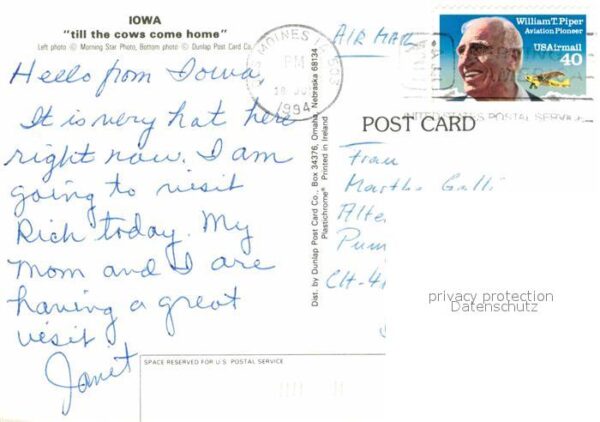 IOWA
"till the cows come home"
Left photo © Morning Star Photo, Bottom photo © Dunlap Post Card Co.
Hello from Iowa,
It is very hot here
right now. I am
going to visit
Rich today. My
Mom and I are
having a great
visit
Janet
SPACE RESERVED FOR U.S. POSTAL SERVICE
Dist. by Dunlap Post Card Co., Box 34376, Omaha, Nebraska 68134
Plastichrome® Printed in Ireland
MOINES
PM
1994
503
AIR MAIL
William T. Piper
Aviation Pioneer
USAirmail
40
UNITED STATES POSTAL SERVICE
POST CARD
Frau
Martha Galli
Alte
Pum
CH-4
privacy protection
Datenschutz